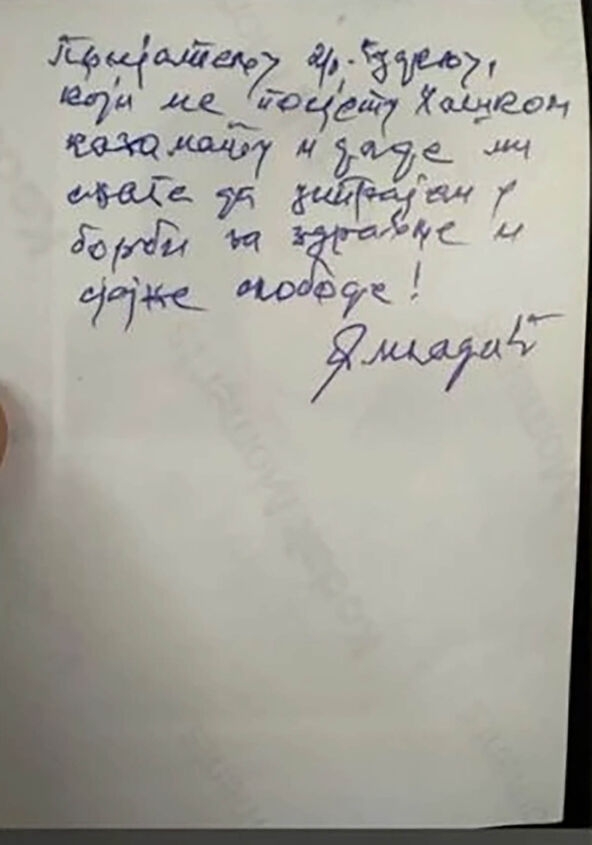 Пријатељу др. Ђудењу,
који ме посјету Хашком
казамату и даде ми
снаге да истрајем у
борби за здравље и
слободе!
Р Младић